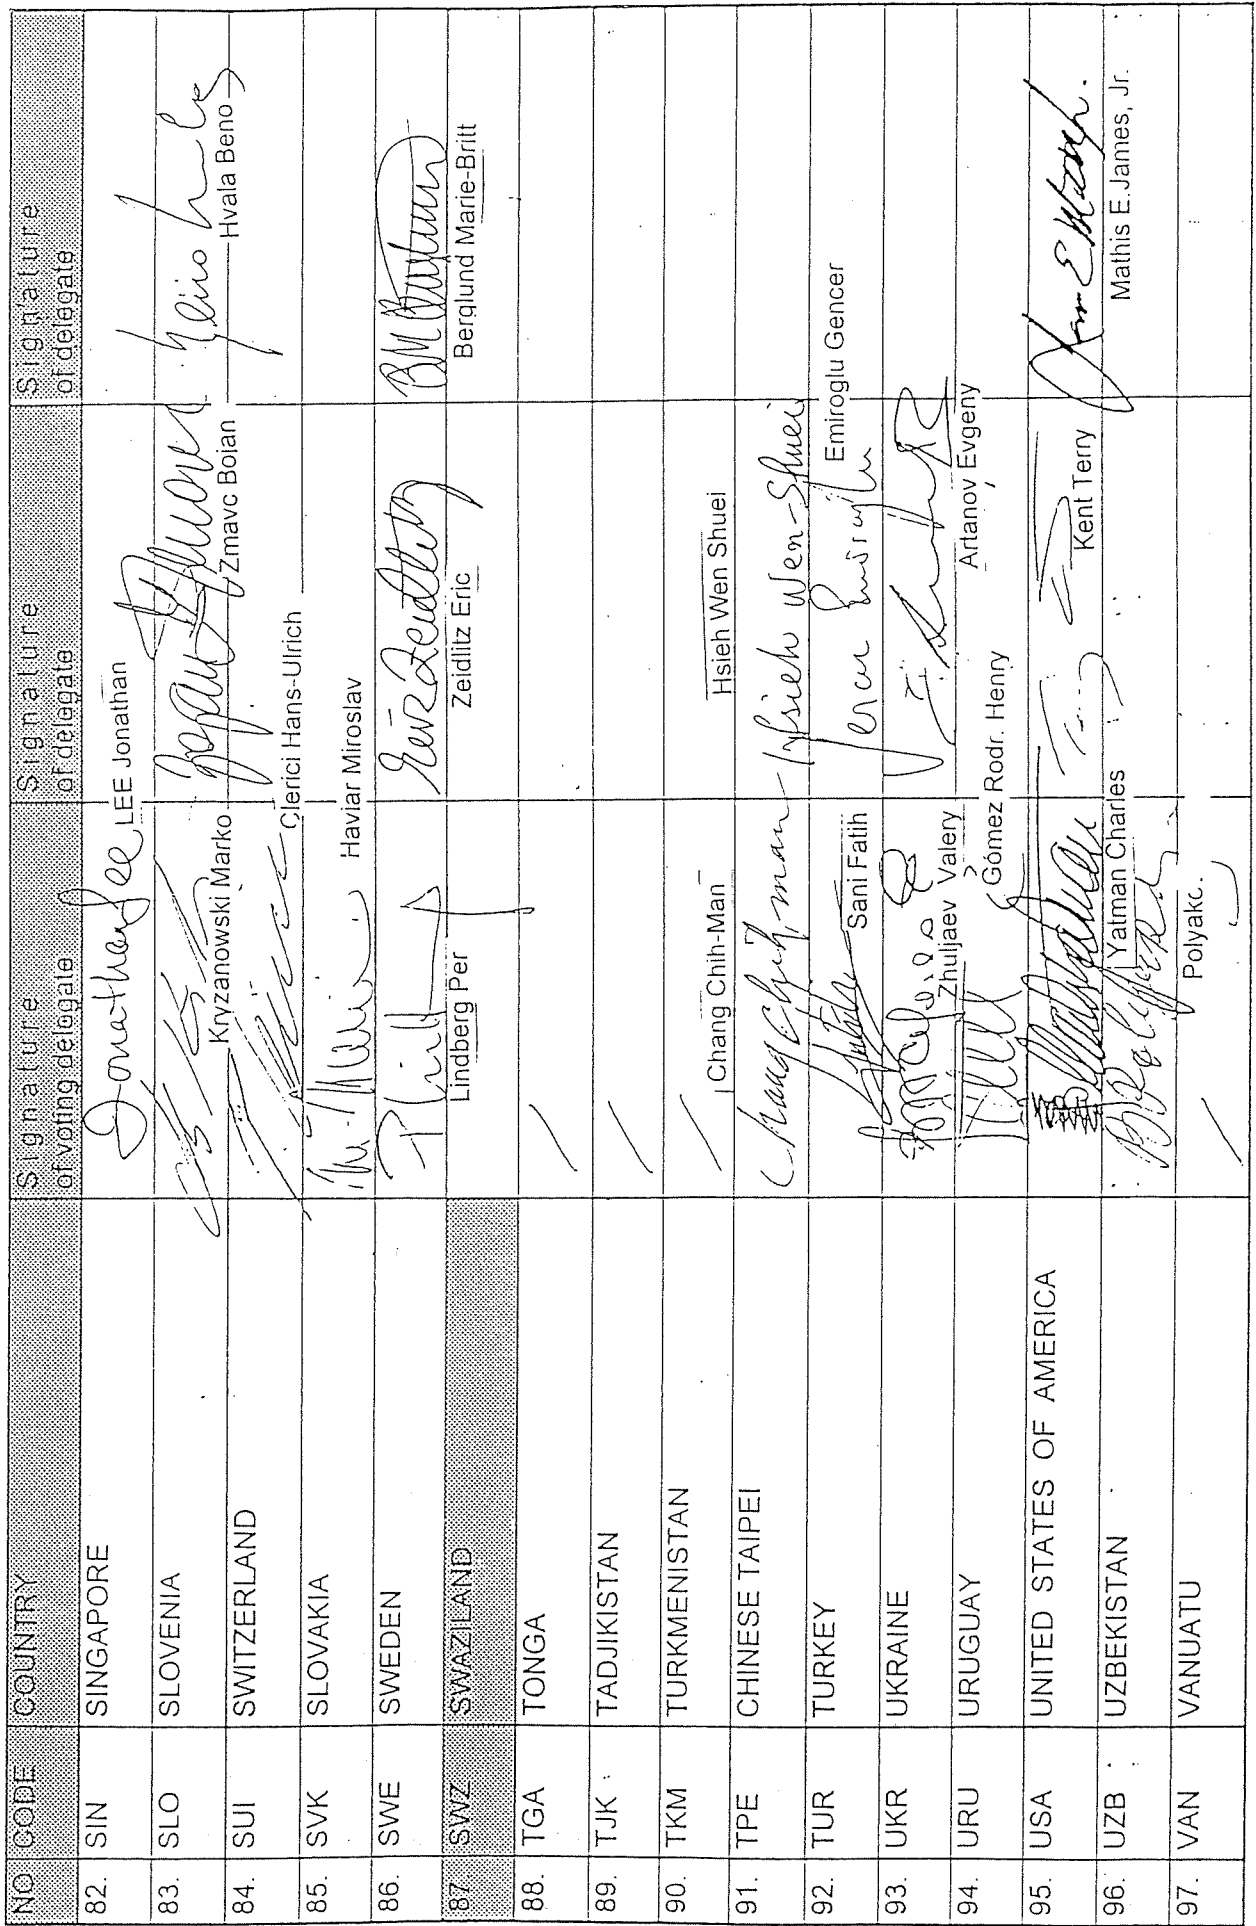 NO CODE COUNTRY Signature of voting delogate Signature of delogate Signature of delogate
82. SIN SINGAPORE Jonathan Lee LEE Jonathan
83. SLO SLOVENIA Kryzanowski Marko Zmavc Boian Hvala Beno
84. SUI SWITZERLAND Clerici Hans-Ulrich
85. SVK SLOVAKIA Haviar Miroslav
86. SWE SWEDEN Lindberg Per Eric Zeidlitz Zeidlitz Eric Berglund Marie-Britt
87. SWZ SWAZILAND
88. TGA TONGA /
89. TJK TADJIKISTAN /
90. TKM TURKMENISTAN /
91. TPE CHINESE TAIPEI Chang Chih-Man Chang Chih-man Hsieh Wen Shuei Hsieh Wen-Shuei
92. TUR TURKEY Sani Fatih Emiroglu Gencer
93. UKR UKRAINE Zhuljaev Valery Artanov Evgeny
94. URU URUGUAY Gómez Rodr. Henry
95. USA UNITED STATES OF AMERICA Yatman Charles Kent Terry Mathis E.James, Jr.
96. UZB UZBEKISTAN Polyakc.
97. VAN VANUATU /